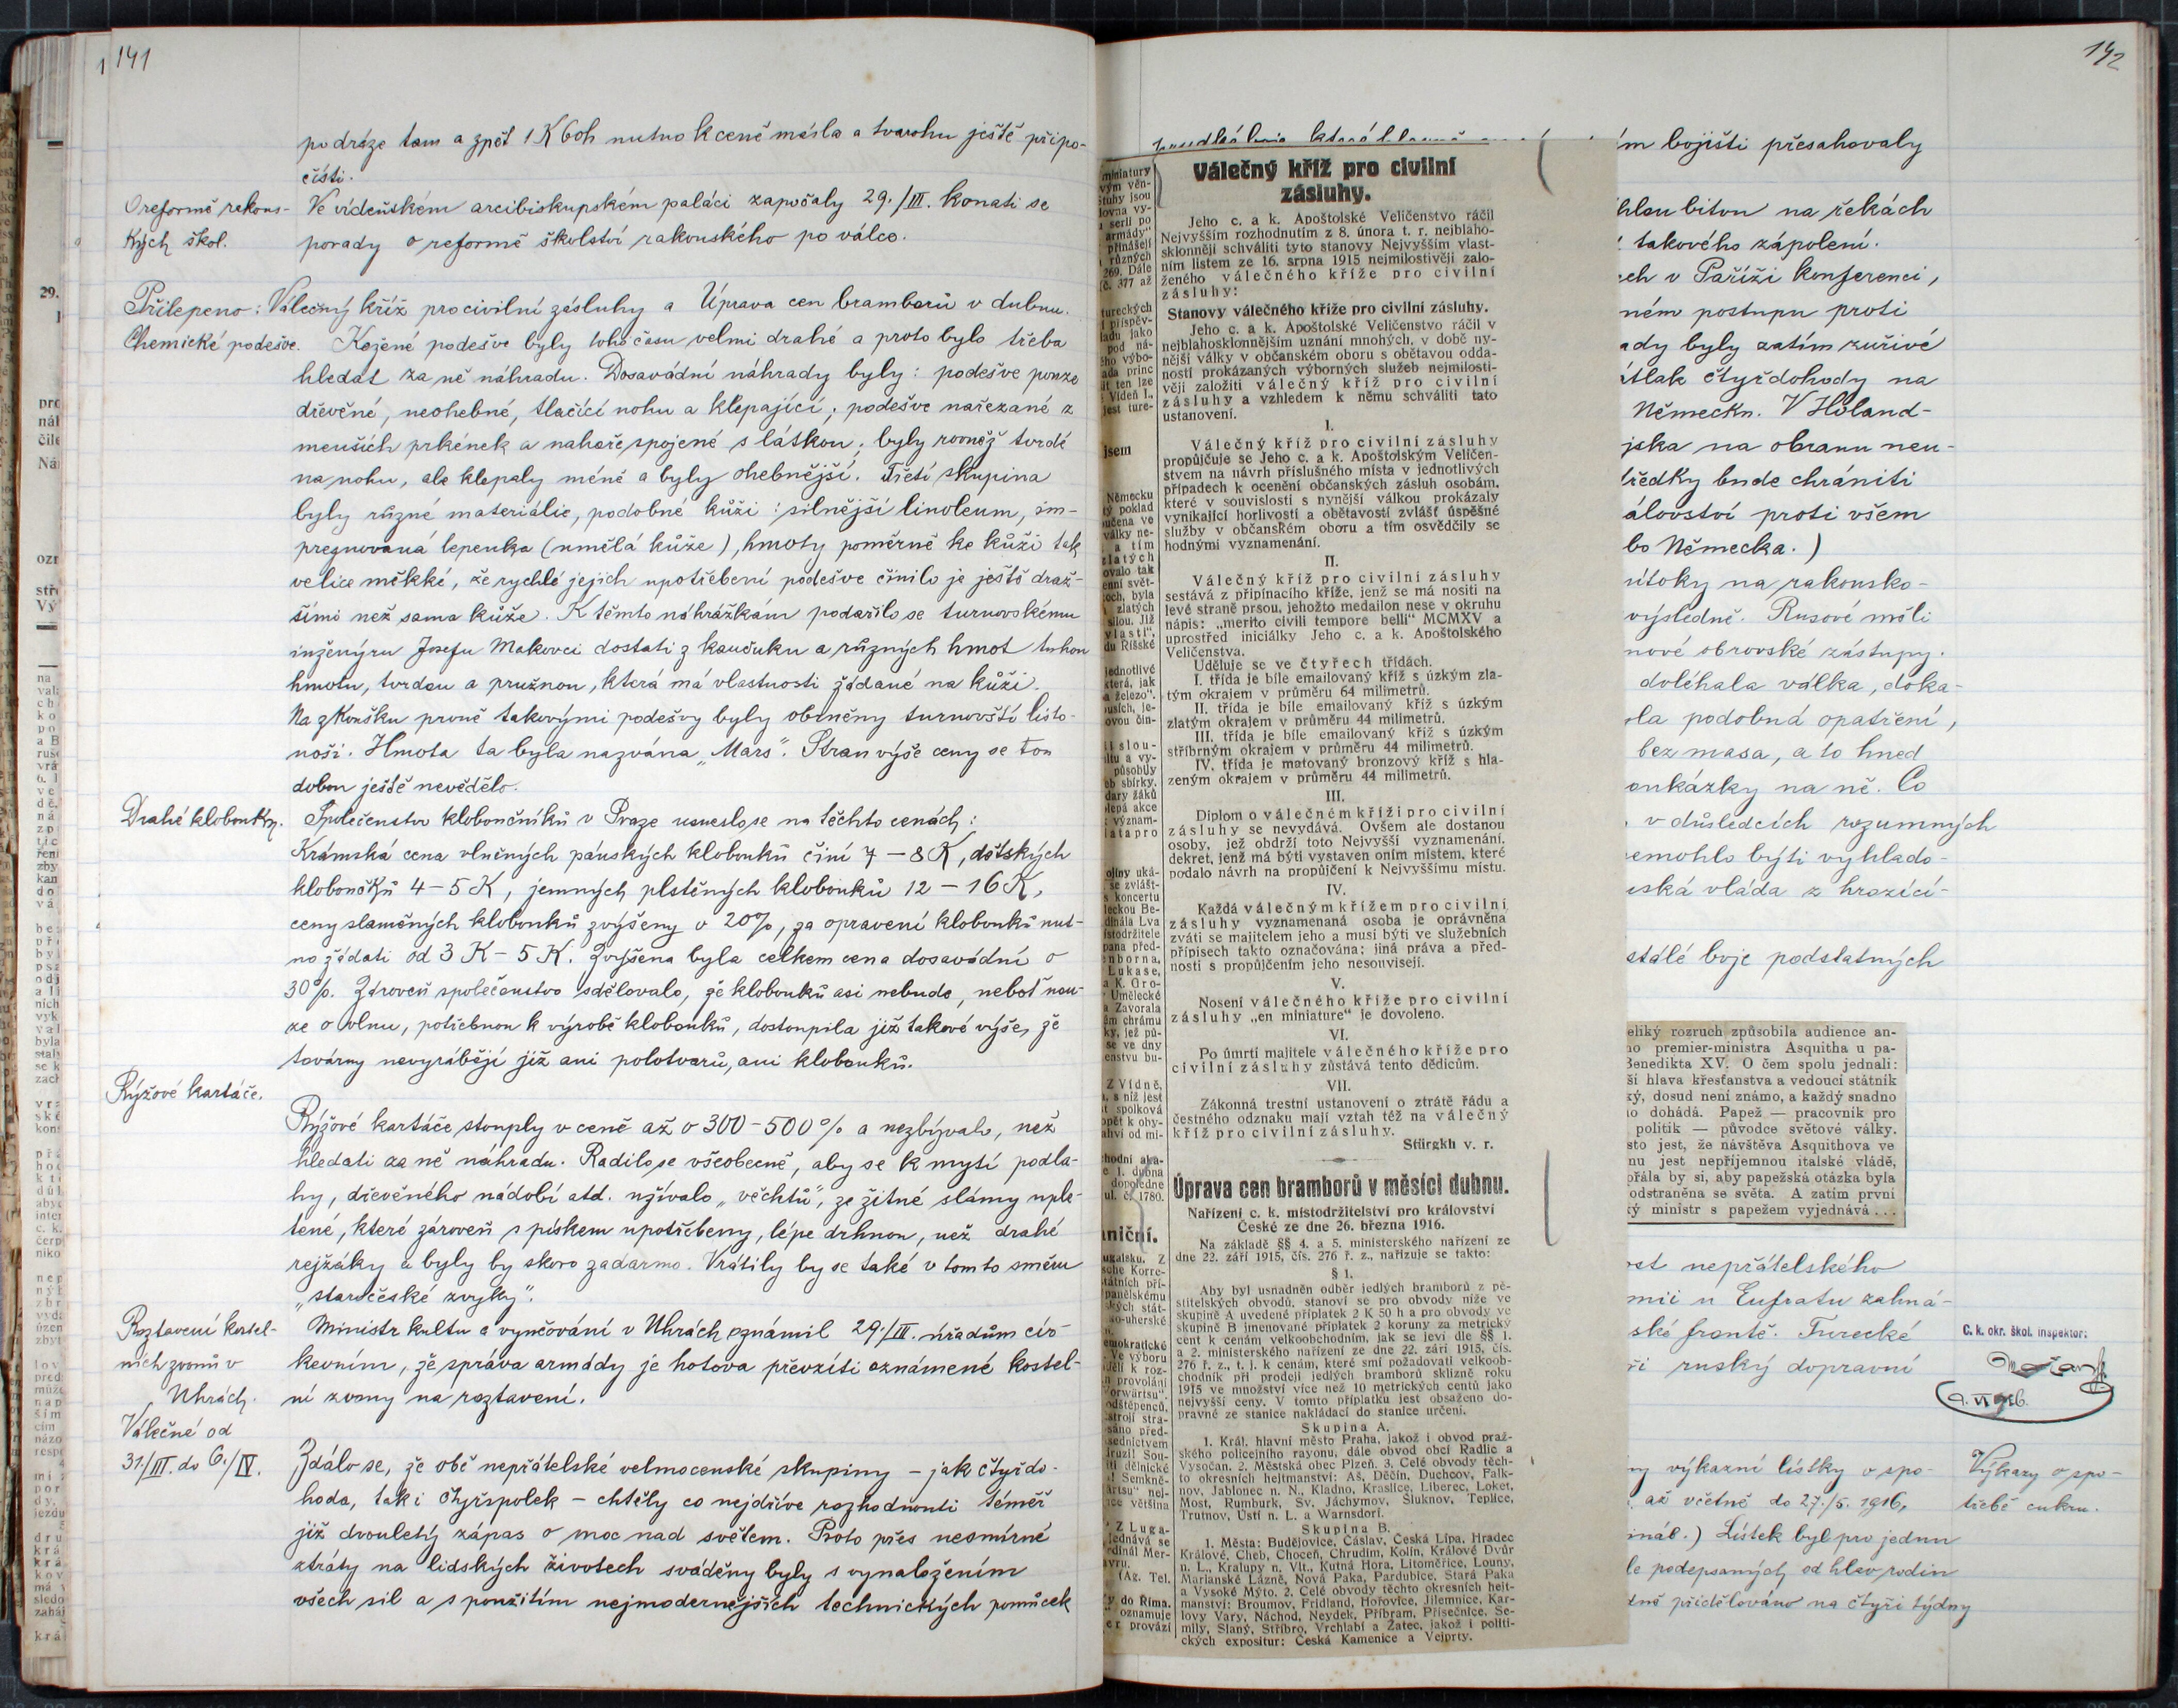 141
podráze tam a zpět 1 K 60h nutno k ceně másla a tvarohu ještě připo-
čísti.
O reformě rakous-
kých škol.
Ve vídeňském arcibiskupském paláci započaly 29./III. konati se
porady o reformě školství rakouského po válce.
Přilepeno: Válečný kříž pro civilní zásluhy a Úprava cen bramborů v dubnu.
Chemické podešve.
Kožené podešve byly toho času velmi drahé a proto bylo třeba
hledat za ně náhradu. Dosavádní náhrady byly: podešve pouze
dřevěné, neohebné, tlačící nohu a klepající; podešve nařezané z
menších prkének a nahoře spojené s látkou; byly rovněž tvrdé
na nohu, ale klepaly méně a byly ohebnější. Třetí skupina
byly různé materiálie, podobné kůži: silnější linoleum, im-
pregnovaná lepenka (umělá kůže), hmoty poměrně ke kůži tak
velice měkké, že rychlé jejich upotřebení podešve činilo je ještě draž-
šími než sama kůže. K těmto náhražkám podařilo se turnovskému
inženýru Josefu Makovci dostati z kaučuku a různých hmot tuhou
hmotu, tvrdou a pružnou, která má vlastnosti žádané na kůži.
Na zkoušku prvně takovými podešvy byly obdněny turnovští listo-
noši. Hmota ta byla nazvána „Mars“. Stran výše ceny se tou
dobou ještě nevědělo.
Drahé klobouky.
Společenstvo kloboučníků v Praze usneslo se na těchto cenách:
Krámská cena vlněných pánských klobouků činí 7 – 8 K, dětských
kloboučků 4–5 K, jemných plstěných klobouků 12 – 16 K,
ceny slaměných klobouků zvýšeny o 20%, za opravení klobouků nut-
no žádati od 3 K – 5 K. Zvýšena byla celkem cena dosavádní o
30%. Zároveň společenstvo sdělovalo, že klobouků asi nebude, neboť nou-
ze o vlnu, potřebnou k výrobě klobouků, dostoupila již takové výše, že
továrny nevyrábějí již ani polotvarů, ani klobouků.
Rýžové kartáče.
Rýžové kartáče stouply v ceně až o 300–500% a nezbývalo, než
hledati za ně náhradu. Radilo se všeobecně, aby se k mytí podla-
hy, dřevěného nádobí atd. užívalo „věchtů“, ze žitné slámy uple-
tené, které zároveň s pískem upotřebeny, lépe drhnou, než drahé
rejžáky a byly by skoro zadarmo. Vrátily by se také v tomto směru
„staročeské zvyky“.
Roztavení kostel-
ních zvonů v
Uhrách.
Ministr kultu a vyučování v Uhrách oznámil 29./III. úřadům cír-
kevním, že správa armády je hotova převzíti oznámené kostel-
ní zvony na roztavení.
Válečné od
31/III. do 6./IV.
Zdálo se, že obě nepřátelské velmocenské skupiny – jak čtyřdo-
hoda, tak i čtyřspolek – chtěly co nejdříve rozhodnouti téměř
již dvouletý zápas o moc nad světem. Proto přes nesmírné
ztráty na lidských životech sváděny byly s vynaložením
všech sil a s použitím nejmodernějších technických pomůcek
142
Válečný kříž pro civilní
zásluhy.
Jeho c. a k. Apoštolské Veličenstvo ráčil
Nejvyšším rozhodnutím z 8. února t. r. nejblaho-
sklonněji schváliti tyto stanovy Nejvyšším vlast-
ním listem ze 16. srpna 1915 nejmilostivěji zalo-
ženého válečného kříže pro civilní
zásluhy:
Stanovy válečného kříže pro civilní zásluhy.
Jeho c. a k. Apoštolské Veličenstvo ráčil v
nejblahosklonnějším uznání mnohých, v době ny-
nější války v občanském oboru s obětavou odda-
ností prokázaných výborných služeb nejmilosti-
věji založiti válečný kříž pro civilní
zásluhy a vzhledem k němu schváliti tato
ustanovení.
I.
Válečný kříž pro civilní zásluhy
propůjčuje se Jeho c. a k. Apoštolským Veličen-
stvem na návrh příslušného místa v jednotlivých
případech k ocenění občanských zásluh osobám,
které v souvislosti s nynější válkou prokázaly
vynikající horlivostí a obětavostí zvlášť úspěšné
služby v občanském oboru a tím osvědčily se
hodnými vyznamenání.
II.
Válečný kříž pro civilní zásluhy
sestává z připínacího kříže, jenž se má nositi na
levé straně prsou, jehožto medailon nese v okruhu
nápis: „merito civili tempore belli“ MCMXV a
uprostřed iniciálky Jeho c. a k. Apoštolského
Veličenstva.
Uděluje se ve čtyřech třídách.
I. třída je bíle emailovaný kříž s úzkým zla-
tým okrajem v průměru 64 milimetrů.
II. třída je bíle emailovaný kříž s úzkým
zlatým okrajem v průměru 44 milimetrů.
III. třída je bíle emailovaný kříž s úzkým
stříbrným okrajem v průměru 44 milimetrů.
IV. třída je matovaný bronzový kříž s hla-
zeným okrajem v průměru 44 milimetrů.
III.
Diplom o válečném kříži pro civilní
zásluhy se nevydává. Ovšem ale dostanou
osoby, jež obdrží toto Nejvyšší vyznamenání,
dekret, jenž má býti vystaven oním místem, které
podalo návrh na propůjčení k Nejvyššímu místu.
IV.
Každá válečným křížem pro civilní
zásluhy vyznamenaná osoba je oprávněna
zváti se majitelem jeho a musí býti ve služebních
přípisech takto označována; jiná práva a před-
nosti s propůjčením jeho nesouvisejí.
V.
Nosení válečného kříže pro civilní
zásluhy „en miniature“ je dovoleno.
VI.
Po úmrtí majitele válečného kříže pro
civilní zásluhy zůstává tento dědicům.
VII.
Zákonná trestní ustanovení o ztrátě řádu a
čestného odznaku mají vztah též na válečný
kříž pro civilní zásluhy.
Stürgkh v. r.
Úprava cen bramborů v měsíci dubnu.
Nařízení c. k. místodržitelství pro království
České ze dne 26. března 1916.
Na základě §§ 4. a 5. ministerského nařízení ze
dne 22. září 1915, čís. 276 ř. z., nařizuje se takto:
§ 1.
Aby byl usnadněn odběr jedlých bramborů z pě-
stitelských obvodů, stanoví se pro obvody níže ve
skupině A uvedené příplatek 2 K 50 h a pro obvody ve
skupině B jmenované příplatek 2 koruny za metrický
cent k cenám velkoobchodním, jak se jeví dle §§ 1.
a 2. ministerského nařízení ze dne 22. září 1915, čís.
276 ř. z., t. j. k cenám, které smí požadovati velkoob-
chodník při prodeji jedlých bramborů sklizně roku
1915 ve množství více než 10 metrických centů jako
nejvyšší ceny. V tomto příplatku jest obsaženo do-
pravné ze stanice nakládací do stanice určení.
Skupina A.
1. Král. hlavní město Praha, jakož i obvod praž-
ského policejního rayonu, dále obvod obcí Radlic a
Vysočan. 2. Městská obec Plzeň. 3. Celé obvody těch-
to okresních hejtmanství: Aš, Děčín, Duchcov, Falk-
nov, Jablonec n. N., Kladno, Kraslice, Liberec, Loket,
Most, Rumburk, Sv. Jáchymov, Šluknov, Teplice,
Trutnov, Ústí n. L. a Warnsdorf.
Skupina B.
1. Města: Budějovice, Čáslav, Česká Lípa, Hradec
Králové, Cheb, Choceň, Chrudim, Kolín, Králové Dvůr
n. L., Kralupy n. Vlt., Kutná Hora, Litoměřice, Louny,
Mariánské Lázně, Nová Paka, Pardubice, Stará Paka
a Vysoké Mýto. 2. Celé obvody těchto okresních hejt-
manství: Broumov, Frídland, Hořovice, Jilemnice, Kar-
lovy Vary, Náchod, Neydek, Příbram, Přísečnice, Se-
mily, Slaný, Stříbro, Vrchlabí a Žatec, jakož i politi-
ckých expositur: Česká Kamenice a Vejprty.
ím bojišti přesahovaly
hloubitou na řekách
takového zápolení.
ch v Paříži konferenci,
ném postupu proti
ady byly zatím zuřivé
átlak čtyřdohody na
Německu. V Holand-
jska na obranu neu-
tředky bude chrániti
álovství proti všem
bo Německa.)
útoky na rakousko-
výsledně. Rusové měli
nové obrovské zástupy.
doléhala válka, doka-
la podobná opatření,
bez masa, a to hned
oukázky na ně. Co
v důsledcích rozumných
emohlo býti vyhlado-
ská vláda z hrozící-
stálé boje podstatných
eliký rozruch způsobila audience an-
ho premier-ministra Asquitha u pa-
Benedikta XV. O čem spolu jednali:
ší hlava křesťanstva a vedoucí státník
ký, dosud není známo, a každý snadno
o dohádá. Papež — pracovník pro
politik — původce světové války.
sto jest, že návštěva Asquithova ve
nu jest nepříjemnou italské vládě,
přála by si, aby papežská otázka byla
odstraněna se světa. A zatím první
ký ministr s papežem vyjednává...
ost nepřátelského
mii u Eufratu zahná-
ské frontě. Turecké
ři ruský dopravní
C. k. okr. škol. inspektor:
9. VI 916.
Výkazy o spo-
třebě cukru.
ny výkazní lístky o spo-
až včetně do 27./5. 1916,
Lístek byl pro jednu
le podepsaných od hlav rodin
dně přidělováno na čtyři týdny